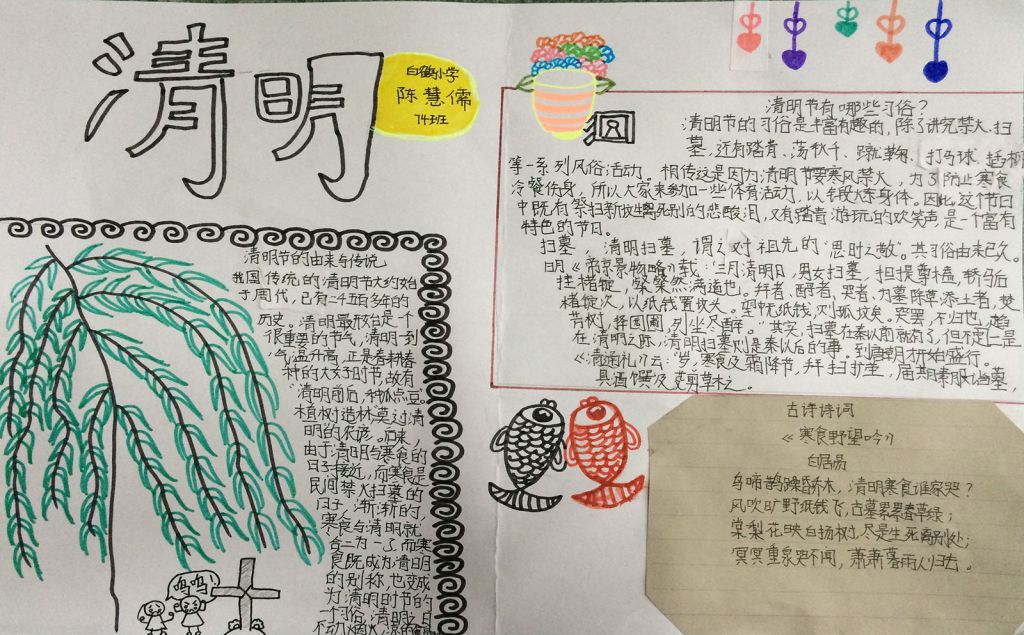 清明
白鹤小学
陈慧儒
74班
清明节的由来与传说
我国传统的清明节大约始
于周代，已有二千五百多年的
历史。清明最开始是一个
很重要的节气，清明一到
气温升高，正是春耕春
种的大好时节，故有
"清明前后，种瓜点豆。
植树造林，莫过清
明的农谚。后来，
由于清明与寒食的
日子接近，而寒食是
民间禁火扫墓的
日子，渐渐的，
寒食与清明就
合二为一了，而寒
食既成为清明
的别称，也变成
为清明时节的
一个习俗，清明之日
不动烟火，凉的
呜呜
清明节有哪些习俗？
清明节的习俗是丰富有趣的，除了讲究禁火、扫
墓，还有踏青、荡秋千、蹴鞠、打马球、插柳
等一系列风俗活动。相传这是因为清明节要寒食禁火，为了防止寒食
冷餐伤身，所以大家来参加一些体育活动，以锻炼身体。因此，这个节日
中既有祭扫新坟生离死别的悲酸泪，又有踏青游玩的欢笑声，是一个富有
特色的节日。
扫墓，清明扫墓，谓之对祖先的"思时之敬"。其习俗由来已久。
明《帝京景物略》载："三月清明日，男女扫墓，担提尊榼，轿马后
挂楮锭，粲粲然满道也。拜者、酹者、哭者、为墓除草添土者，焚
楮锭次，以纸钱置坟头。望中无纸钱，则孤坟矣。哭罢，不归也，趋
芳树，择园圃，列坐尽醉。"其实，扫墓在秦以前就有了，但不一定是
在清明之际，清明扫墓则是秦以后的事。到唐朝才开始盛行。
《清通礼》云："岁，寒食及霜降节，拜扫圹茔，届期素服诣墓，
具酒馔及芟剪草木之
古诗诗词
《寒食野望吟》
白居易
乌啼鹊噪昏乔木，清明寒食谁家哭？
风吹旷野纸钱飞，古墓累累春草绿；
棠梨花映白杨树，尽是生死离别处；
冥冥重泉哭不闻，萧萧暮雨人归去。